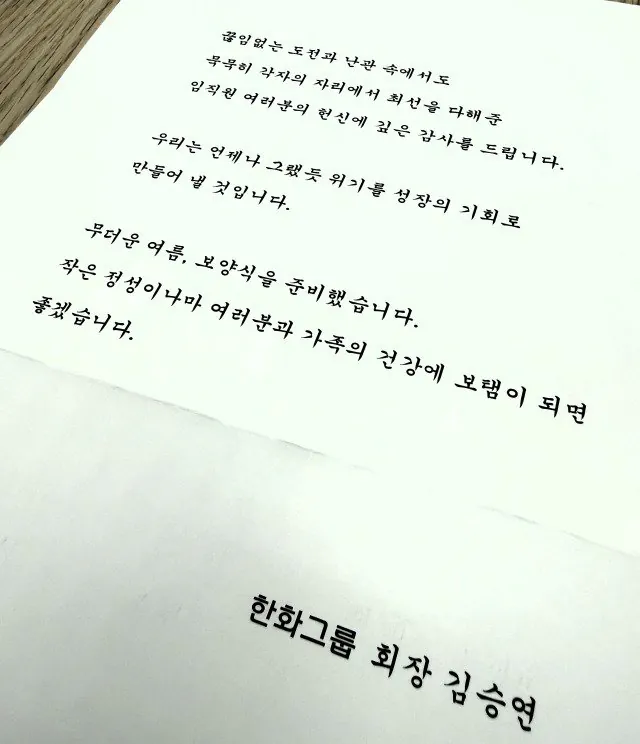 끊임없는 도전과 난관 속에서도
묵묵히 각자의 자리에서 최선을 다해준
임직원 여러분의 헌신에 깊은 감사를 드립니다.
우리는 언제나 그랬듯 위기를 성장의 기회로
만들어 낼 것입니다.
무더운 여름, 보양식을 준비했습니다.
작은 정성이나마 여러분과 가족의 건강에 보탬이 되면
좋겠습니다.
한화그룹 회장 김승연